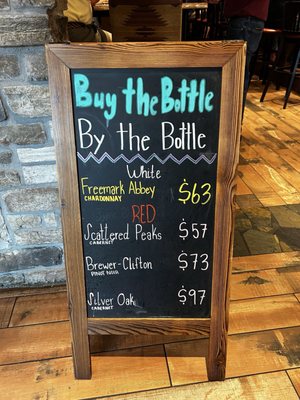 Buy the Bottle
By the Bottle
White
Freemark Abbey $63
CHARDONNAY
RED
Scattered Peaks $57
CABERNET
Brewer-Clifton $73
PINOT NOIR
Silver Oak $97
CABERNET